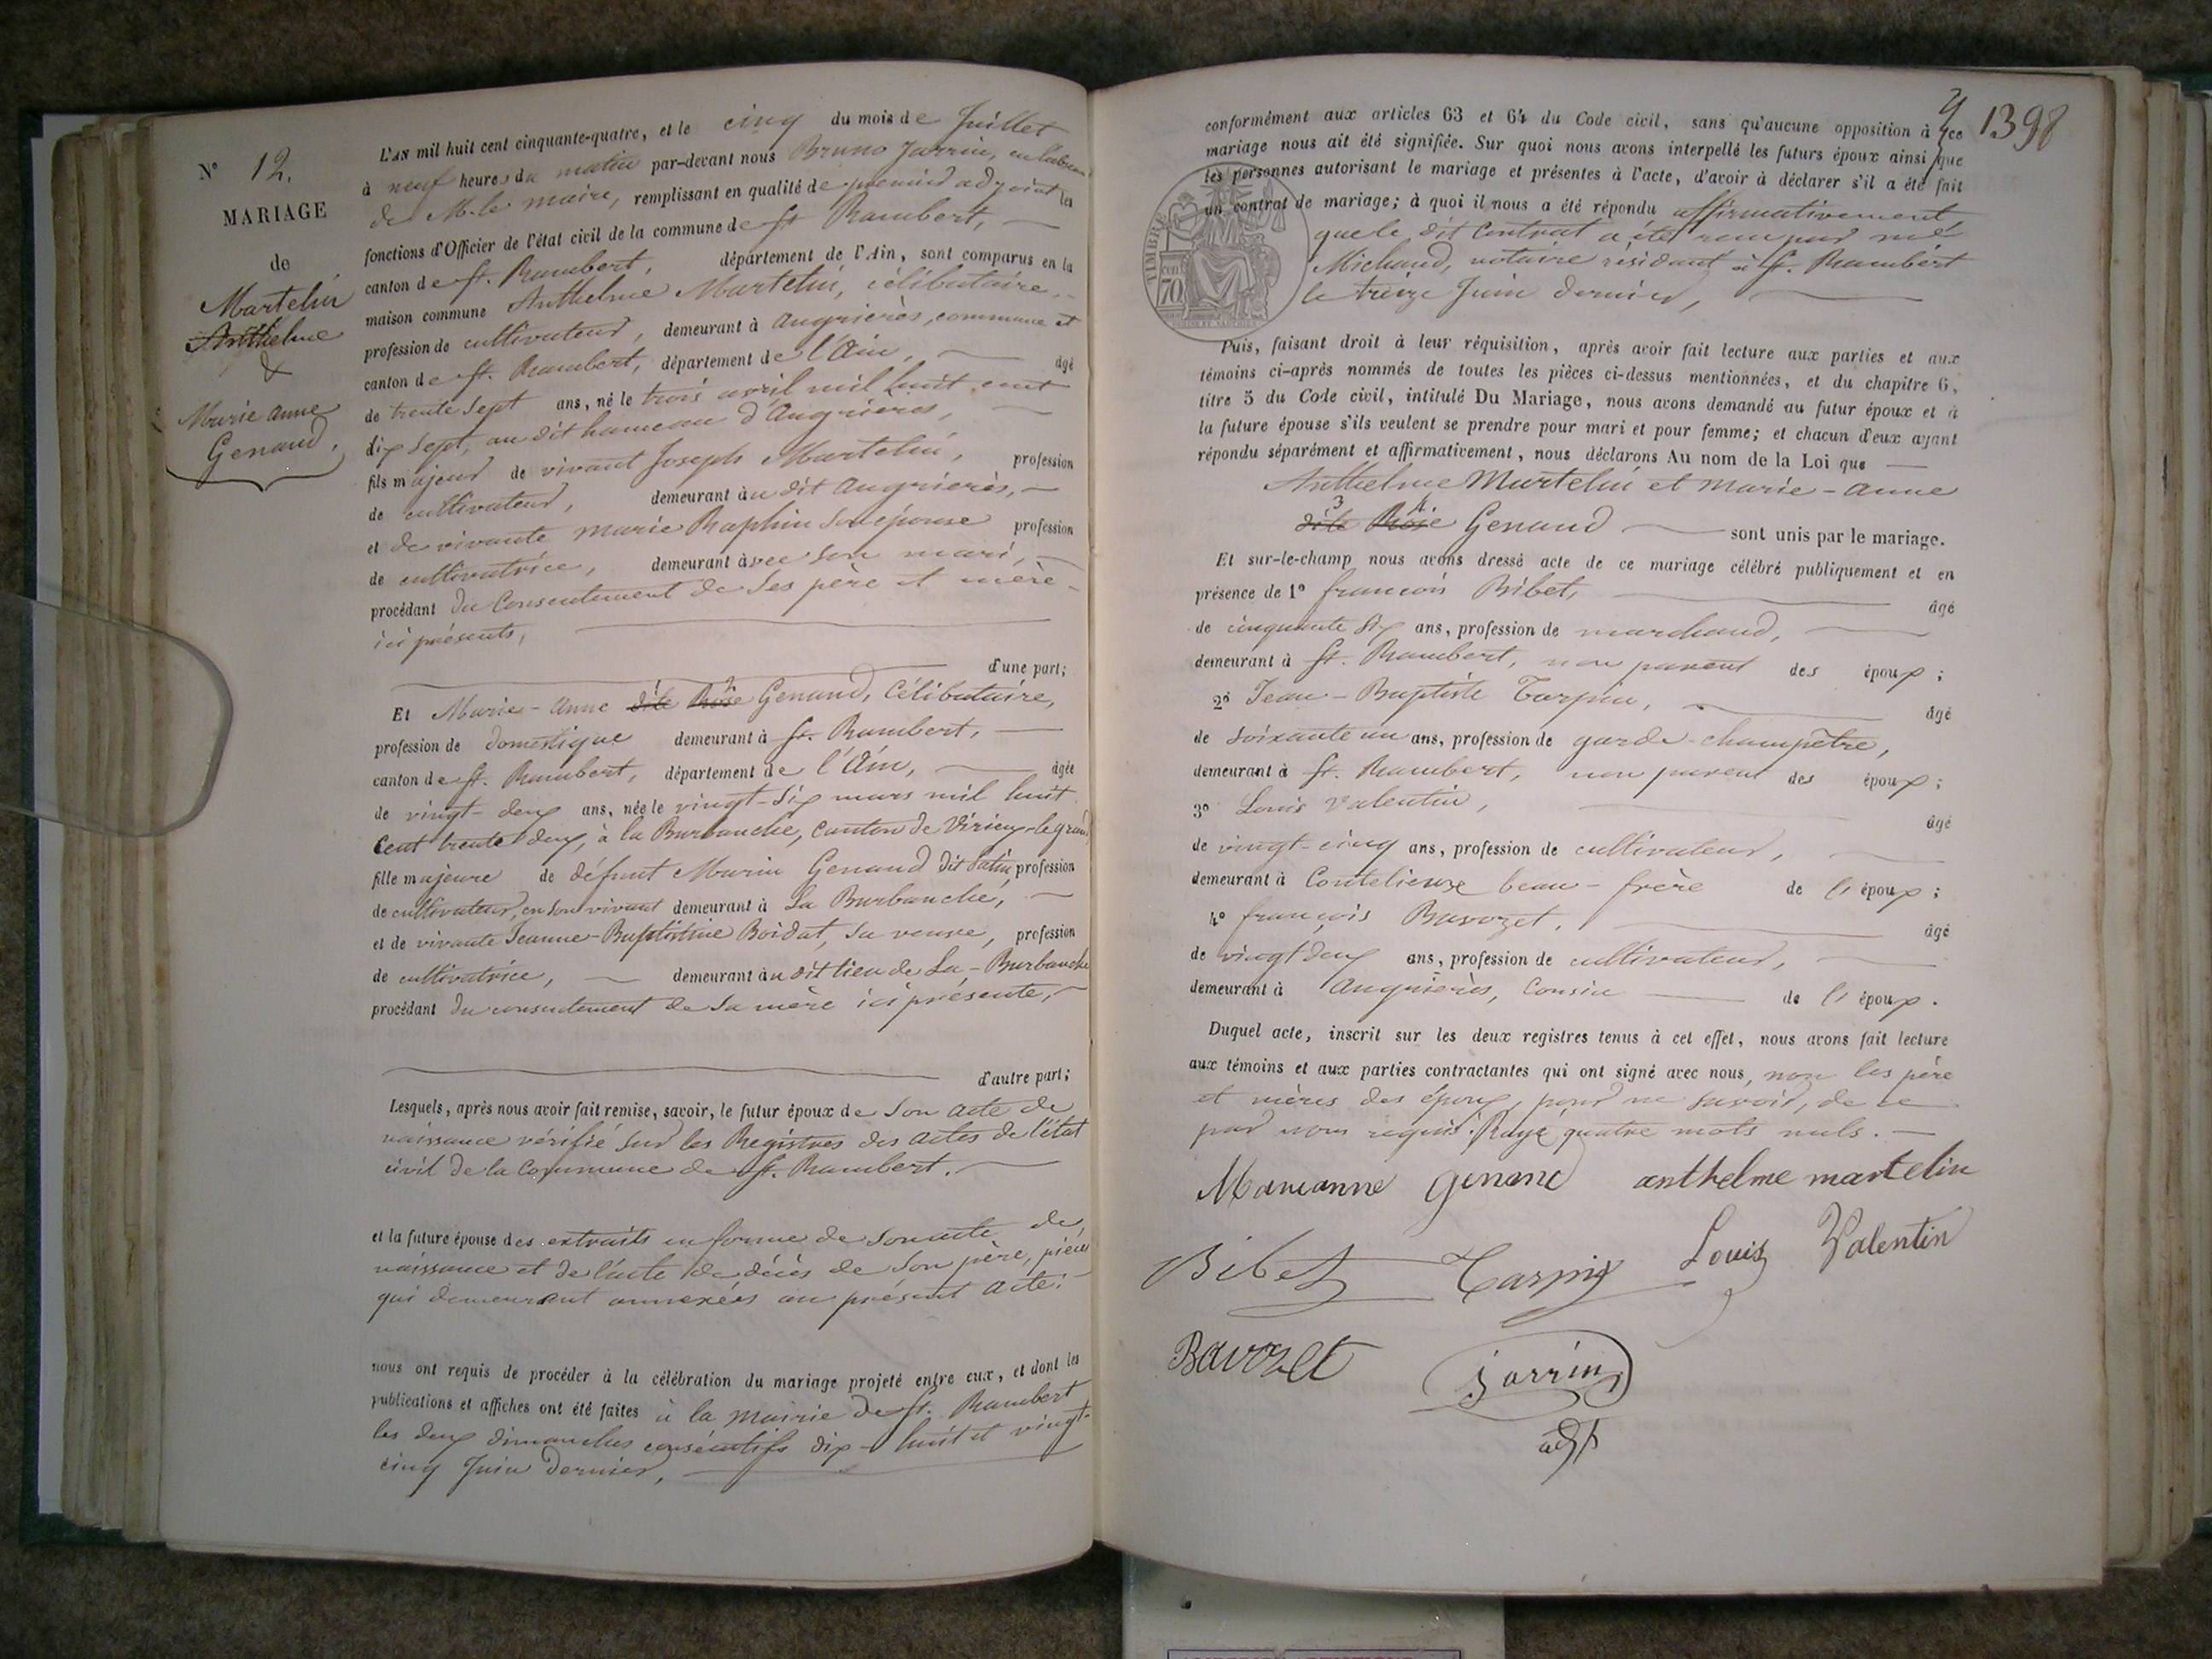 N° 12.
MARIAGE
de
Martelin
Anthelme
&
Marie anne
Genaud.
L'AN mil huit cent cinquante-quatre, et le cinq du mois de Juillet
à neuf heures du matin par-devant nous Bruno Jarrin, en l'absence
de M. le maire, remplissant en qualité de premier adjoint les
fonctions d'Officier de l'état civil de la commune de St Rambert,
canton de St. Rambert, département de l'Ain, sont comparus en la
maison commune Anthelme Martelin, célibataire,
profession de cultivateur, demeurant à Angrières, commune et
canton de St. Rambert, département de l'Ain, âgé
de trente sept ans, né le trois avril mil huit cent
dix sept, au dit hameau d'Angrières,
fils majeur de vivant Joseph Martelin, profession
de cultivateur, demeurant au dit Angrières,
et de vivante marie Raphin son épouse profession
de cultivatrice, demeurant avec son mari,
procédant du Consentement de ses père et mère
ici présents,
d'une part;
Et Marie-Anne dite Rose Genaud, Célibataire,
profession de domestique demeurant à St. Rambert,
canton de St. Rambert, département de l'Ain, âgée
de vingt-deux ans, née le vingt-six mars mil huit
Cent trente deux, à la Burbanche, Canton de Virieu-le-grand
fille majeure de défunt Marin Genaud dit profession
de cultivateur, en son vivant demeurant à La Burbanche,
et de vivante Jeanne-Baptistine Boidat, sa veuve, profession
de cultivatrice, demeurant au dit lieu de La-Burbanche
procédant du consentement de sa mère ici présente,
d'autre part;
Lesquels, après nous avoir fait remise, savoir, le futur époux de son acte de
naissance vérifié sur les Registres des actes de l'état
civil de la Commune de St. Rambert.
et la future épouse des extraits en forme de son acte de
naissance et de l'acte de décès de son père, pièces
qui demeurent annexées au présent acte.
nous ont requis de procéder à la célébration du mariage projeté entre eux, et dont les
publications et affiches ont été faites à la mairie de St. Rambert
les deux dimanches consécutifs dix-huit et vingt-
cinq Juin dernier,
1398
conformément aux articles 63 et 64 du Code civil, sans qu'aucune opposition à ce
mariage nous ait été signifiée. Sur quoi nous avons interpellé les futurs époux ainsi que
les personnes autorisant le mariage et présentes à l'acte, d'avoir à déclarer s'il a été fait
un contrat de mariage; à quoi il nous a été répondu affirmativement
que le dit Contrat a été reçu par me
Michaud, notaire résidant à St. Rambert
le treize Juin dernier,
TIMBRE
70
Puis, faisant droit à leur réquisition, après avoir fait lecture aux parties et aux
témoins ci-après nommés de toutes les pièces ci-dessus mentionnées, et du chapitre 6,
titre 5 du Code civil, intitulé Du Mariage, nous avons demandé au futur époux et à
la future épouse s'ils veulent se prendre pour mari et pour femme; et chacun d'eux ayant
répondu séparément et affirmativement, nous déclarons Au nom de la Loi que
Anthelme Martelin et Marie-Anne
dite Rose Genaud sont unis par le mariage.
Et sur-le-champ nous avons dressé acte de ce mariage célébré publiquement et en
présence de 1° françois Bibet, âgé
de cinquante six ans, profession de marchand,
demeurant à St. Rambert, non parent des époux;
2° Jean-Baptiste Tarpin, âgé
de soixante un ans, profession de garde-champêtre,
demeurant à St. Rambert, non parent des époux;
3° Louis Valentin, âgé
de vingt-cinq ans, profession de cultivateur,
demeurant à Contelieuse beau-frère de l'époux;
4° françois Bavozet, âgé
de vingt deux ans, profession de cultivateur,
demeurant à Angrières, Cousin de l'époux.
Duquel acte, inscrit sur les deux registres tenus à cet effet, nous avons fait lecture
aux témoins et aux parties contractantes qui ont signé avec nous, non les père
et mères des époux, pour ne savoir, de ce
par nous requis. Rayé quatre mots nuls.
Marianne genand anthelme martelin
Bibet Tarpin Louis Valentin
Bavozet Jarrin
adjt